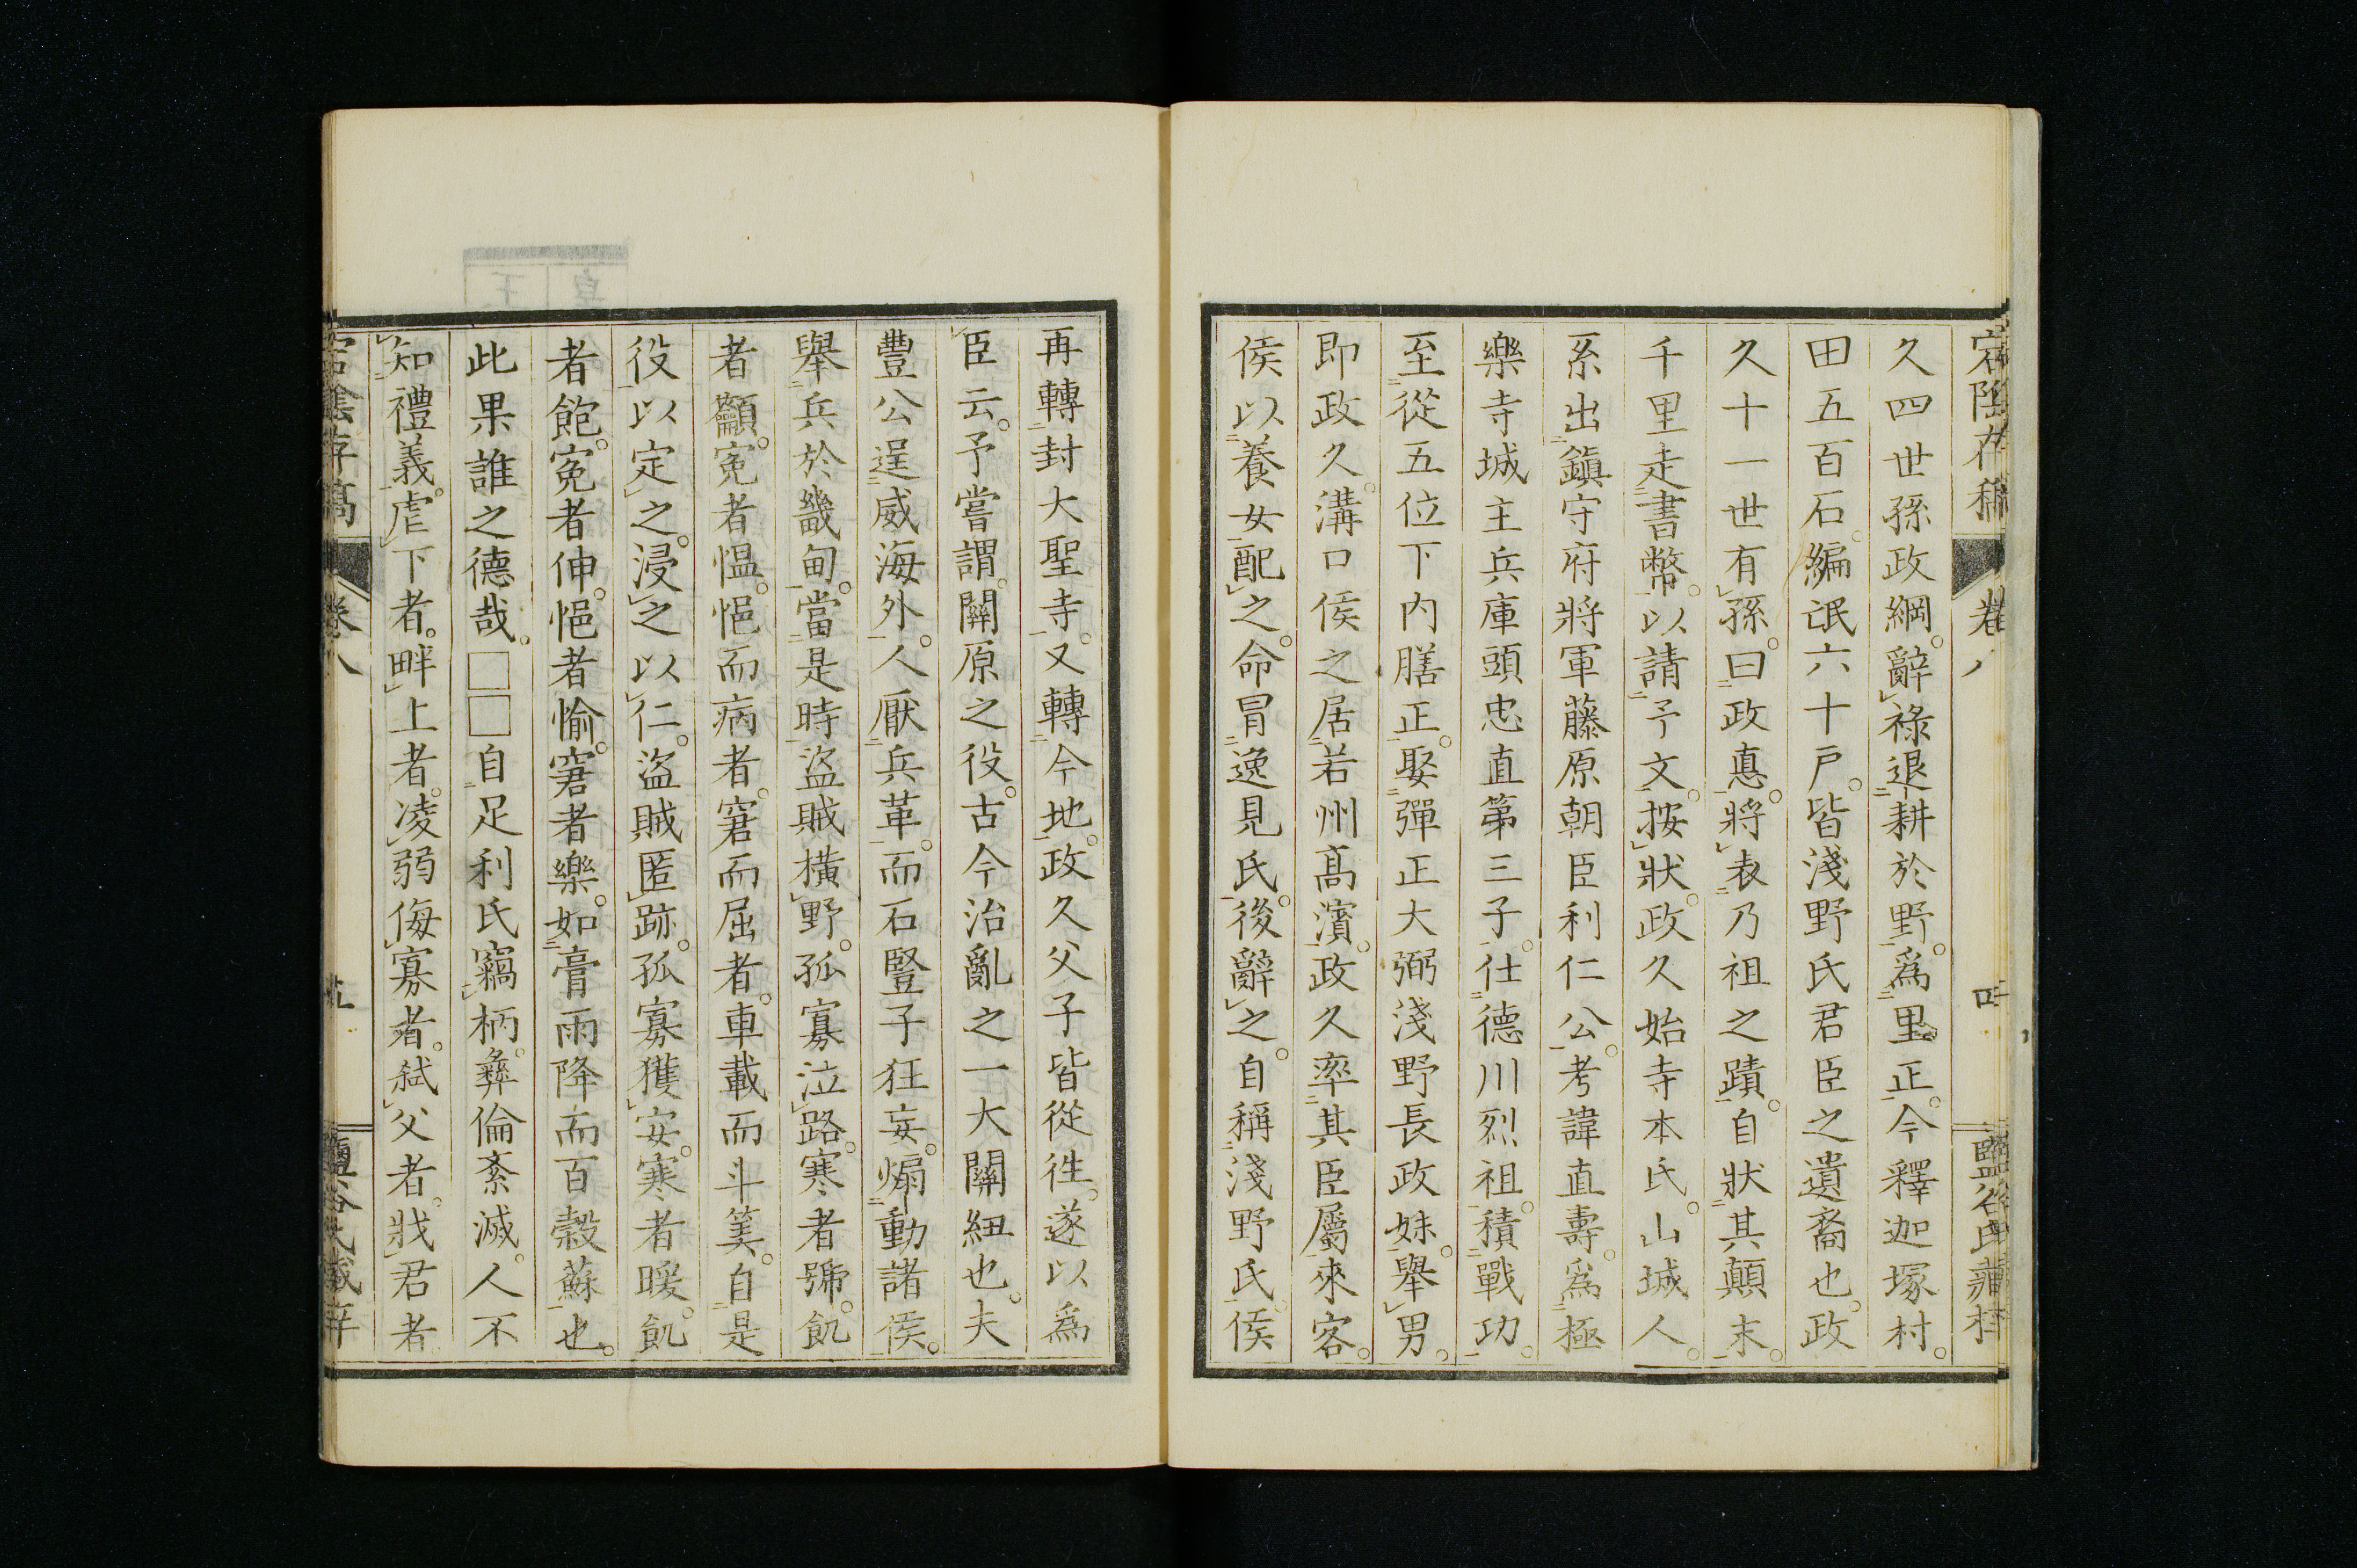 卷八
久四世孫政綱。辭祿退耕於野。爲里正。今釋迦塚村。
田五百石。編氓六十戶。皆淺野氏君臣之遺裔也。政
久十一世有孫。曰政惪。將表乃祖之蹟。自狀其顛末。
千里走書幣。以請予文。按狀。政久始寺本氏。山城人。
系出鎭守府將軍藤原朝臣利仁公。考諱直壽。爲極
樂寺城主兵庫頭忠直第三子。仕德川烈祖。積戰功。
至從五位下內膳正。娶彈正大弼淺野長政妹。舉男。
即政久。溝口侯之居若州高濱。政久率其臣屬來客。
侯以養女配之。命冒逸見氏。後辭之。自稱淺野氏。侯
再轉封大聖寺。又轉今地。政久父子皆從徃。遂以爲
臣云。予嘗謂。關原之役。古今治亂之一大關紐也。夫
豐公逞威海外。人厭兵革。而石豎子狂妄。煽動諸侯。
舉兵於畿甸。當是時盜賊橫野。孤寡泣路。寒者號。飢
者顲。寃者愠。悒而病者。窘而屈者。車載而斗筭。自是
役以定之。浸之以仁。盜賊匿跡。孤寡獲安。寒者暖。飢
者飽。寃者伸。悒者愉。窘者樂。如膏雨降而百穀蘇也。
此果誰之德哉。□□自足利氏竊柄。彝倫紊滅。人不
知禮義。虐下者。畔上者。凌弱侮寡者。弑父者。戕君者
卷八